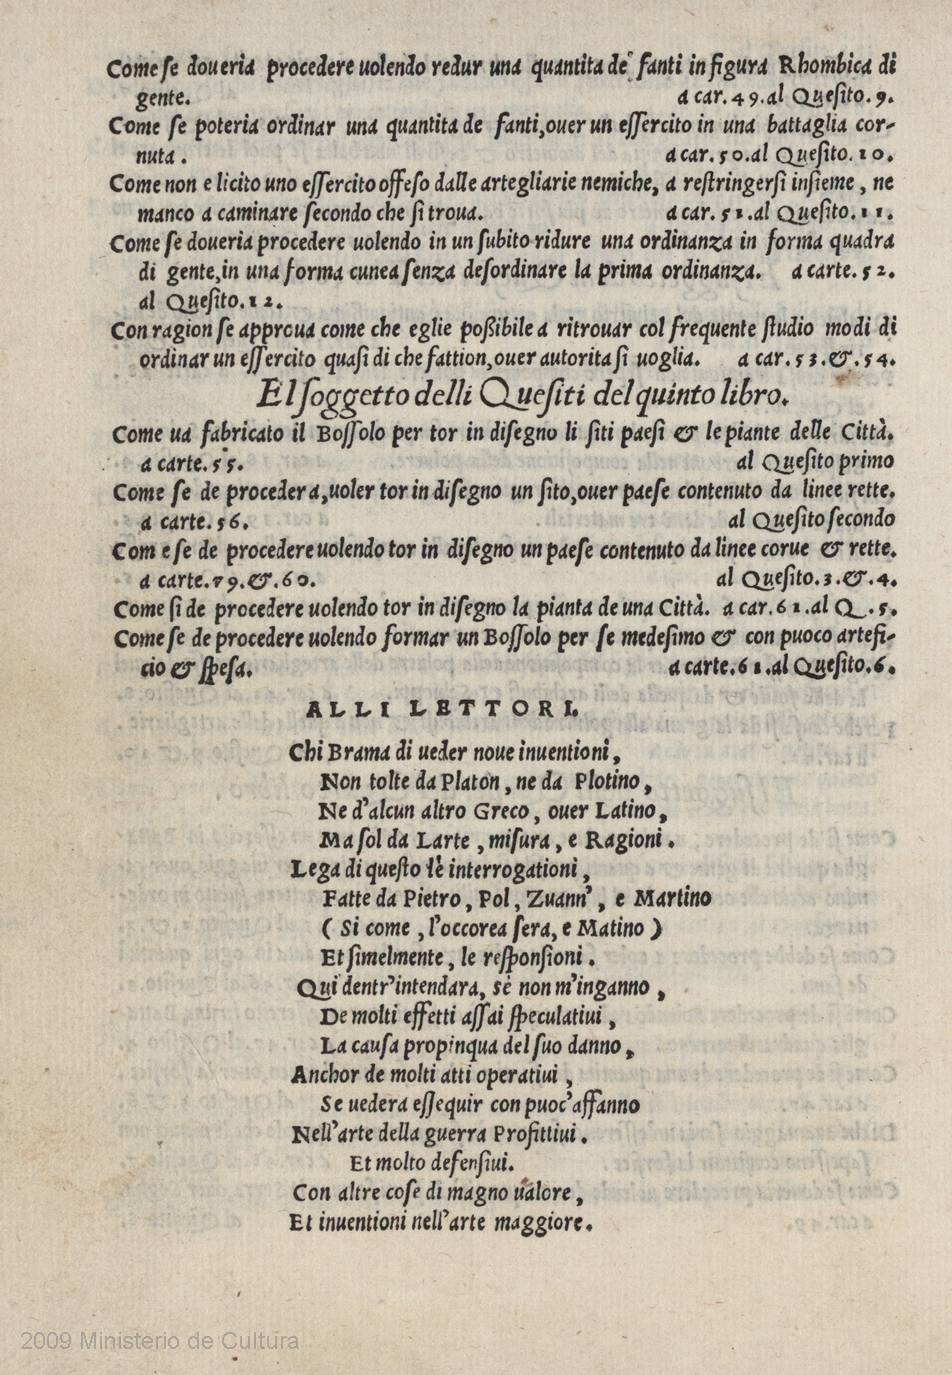 Come se doueria procedere uolendo redur una quantita de fanti in figura Rhombica di
gente. a car.49.al Quesito.9.
Come se poteria ordinar una quantita de fanti,ouer un essercito in una battaglia cor-
nuta. a car.50.al Quesito.10.
Come non e licito uno essercito offeso dalle artegliarie nemiche, a restringersi insieme, ne
manco a caminare secondo che si troua. a car.51.al Quesito.11.
Come se doueria procedere uolendo in un subito ridure una ordinanza in forma quadra
di gente,in una forma cunea senza desordinare la prima ordinanza. a carte.52.
al Quesito.12.
Con ragion se approua come che eglie poßibile a ritrouar col frequente studio modi di
ordinar un essercito quasi di che fattion,ouer autorita si uoglia. a car.53.&.54.
El soggetto delli Quesiti del quinto libro.
Come ua fabricato il Bossolo per tor in disegno li siti paesi & le piante delle Città.
a carte.55. al Quesito primo
Come se de proceder a,uoler tor in disegno un sito,ouer paese contenuto da linee rette.
a carte.56. al Quesito secondo
Com e se de procedere uolendo tor in disegno un paese contenuto da linee corue & rette.
a carte.79.&.60. al Quesito.3.&.4.
Come si de procedere uolendo tor in disegno la pianta de una Città. a car.61.al Q.5.
Come se de procedere uolendo formar un Bossolo per se medesimo & con puoco artefi-
cio & spesa. a carte.61.al Quesito.6.
ALLI LETTORI.
Chi Brama di ueder noue inuentioni,
Non tolte da Platon, ne da Plotino,
Ne d'alcun altro Greco, ouer Latino,
Ma sol da Larte, misura, e Ragioni.
Lega di questo le interrogationi,
Fatte da Pietro, Pol, Zuann', e Martino
( Si come, l'occorea sera, e Matino )
Et simelmente, le responsioni.
Qui dentr'intendara, sè non m'inganno,
De molti effetti assai speculatiui,
La causa propinqua del suo danno,
Anchor de molti atti operatiui,
Se uedera essequir con puoc'affanno
Nell'arte della guerra Profittiui.
Et molto defensiui.
Con altre cose di magno ualore,
Et inuentioni nell'arte maggiore.
2009 Ministerio de Cultura